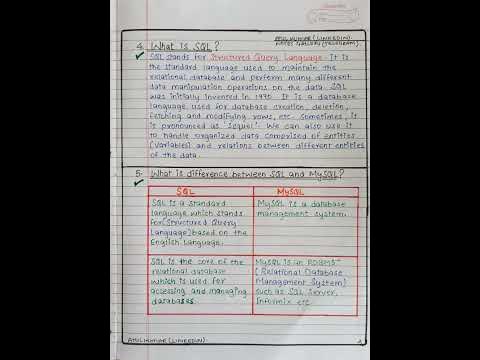 ATUL KUMAR (LINKEDIN).
NOTES GALLERY (TELEGRAM).
4. What is SQL?
SQL stands for Structured Query Language. It is
the standard language used to maintain the
relational database and perform many different
data manipulation operations on the data. SQL
was initially invented in 1970. It is a database
language used for database creation, deletion,
fetching and modifying rows, etc. Sometimes, it
is pronounced as 'sequel'. We can also use it
to handle organized data comprised of entities
(variables) and relations between different entities
of the data.
5. What is difference between SQL and MySQL?
SQL
MySQL
SQL is a standard
language which stands
for (Structured Query
Language) based on the
English Language.
MySQL is a database
management system.
SQL is the core of the
relational database
which is used for
accessing and managing
databases
MySQL is an RDBMS
(Relational Database
Management System)
such as SQL Server,
Informix etc.
ATUL KUMAR (LINKEDIN)